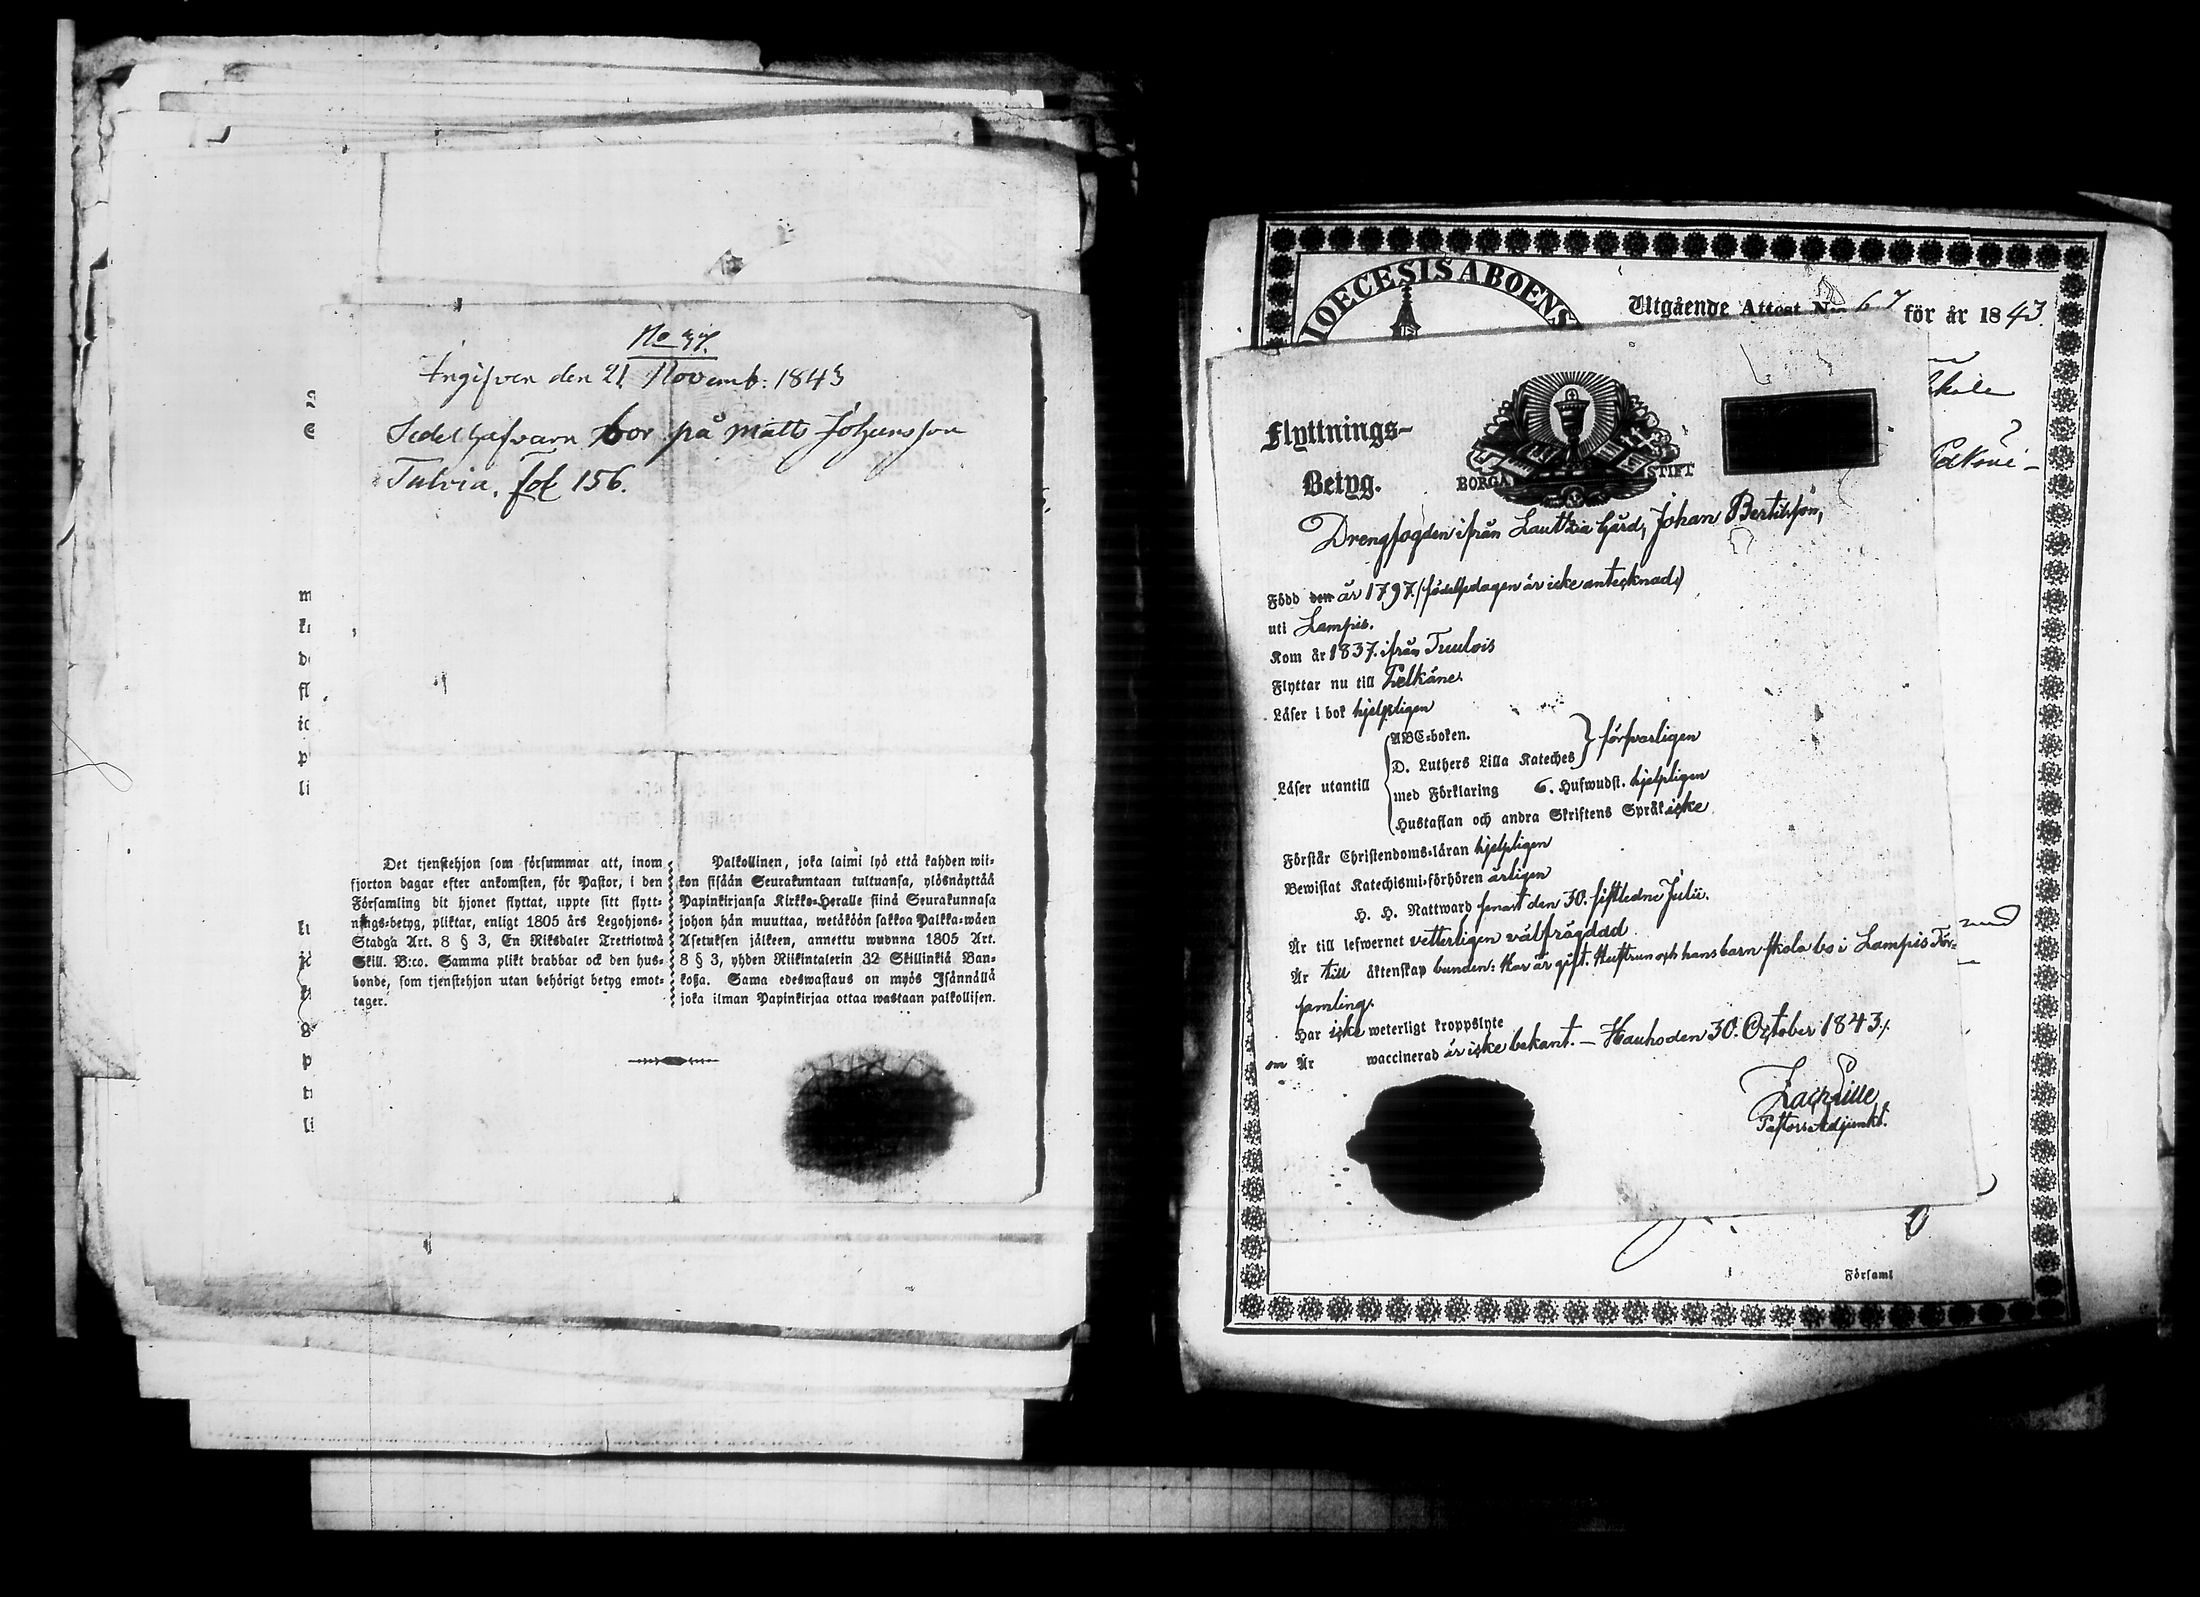 No 37.
Ingifven den 21 Novemb: 1843
Sedelhafvarn bor på Matts Johansson
Tulvia. fol 156.
Det tjenstehjon som försummar att, inom
fjorton dagar efter ankomsten, för Pastor, i den
Församling dit hjonet flyttat, uppte sitt flytt-
nings-betyg, pliktar, enligt 1805 års Legohjons-
Stadga Art. 8 § 3, En Riksdaler Trettiotwå
Skill. B:co. Samma plikt drabbar ock den hus-
bonde, som tjenstehjon utan behörigt betyg emot-
tager.
Palkollinen, joka laimi lyö että kahden wii-
kon sisään Seurakuntaan tultuansa, ylösnäyttää
Papinkirjansa Kirkko-Heralle siinä Seurakunnasa
johon hän muuttaa, wetäköön sakkoa Palkka-wäen
Asetuksen jälkeen, annettu wuonna 1805 Art.
8 § 3, yhden Riikintalerin 32 Skillinkiä Ban-
koßa. Sama edeswastaus on myös Isännällä
joka ilman Papinkirjaa ottaa wastaan palkollisen.
IOECESIS ABOENS
Utgående Attest No 67 för år 1843.
Flyttnings-
Betyg.
BORGÅ STIFT
Drengfogden ifrån Lautsia Gård, Johan Bertilsson,
Född den år 1797. (födelsedagen är icke antecknad)
uti Lampis.
Kom år 1837. ifrån Tuulois
Flyttar nu till Pelkäne.
Läser i bok hjelpligen
Läser utantill
ABC-boken.
D. Luthers Lilla Kateches } försvarligen
med Förklaring 6. Hufwudst. hjelpligen
Hustaflan och andra Skriftens Språk icke
Förstår Christendoms-läran hjelpligen
Bewistat Katechismi-förhören årligen
H. H. Nattward senast den 30. sistledne Julii.
Är till lefwernet vetterligen välfrägdad
Är till äktenskap bunden: Har är gift. Hustrun och hans barn skola bo i Lampis För-
samling.
Har icke weterligt kroppslyte
om Är waccinerad är icke bekant. — Hauho den 30. October 1843.
Zach Lille
Pastors Adjunkt.
Församl